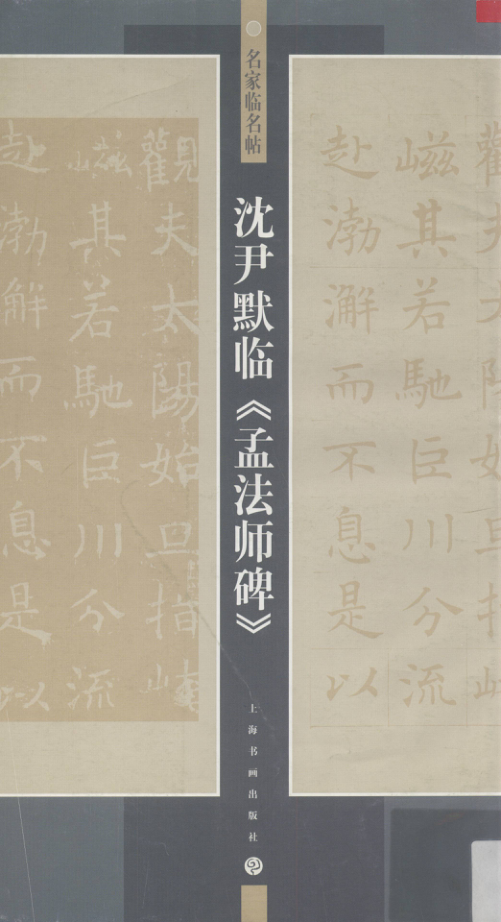 名家临名帖
沈尹默临《孟法师碑》
上海书画出版社
嵫其若馳巨川分流
赴渤澥而不息是以
觀夫太陽始旦指崦
嵫其若馳巨川分流
赴渤澥而不息是以